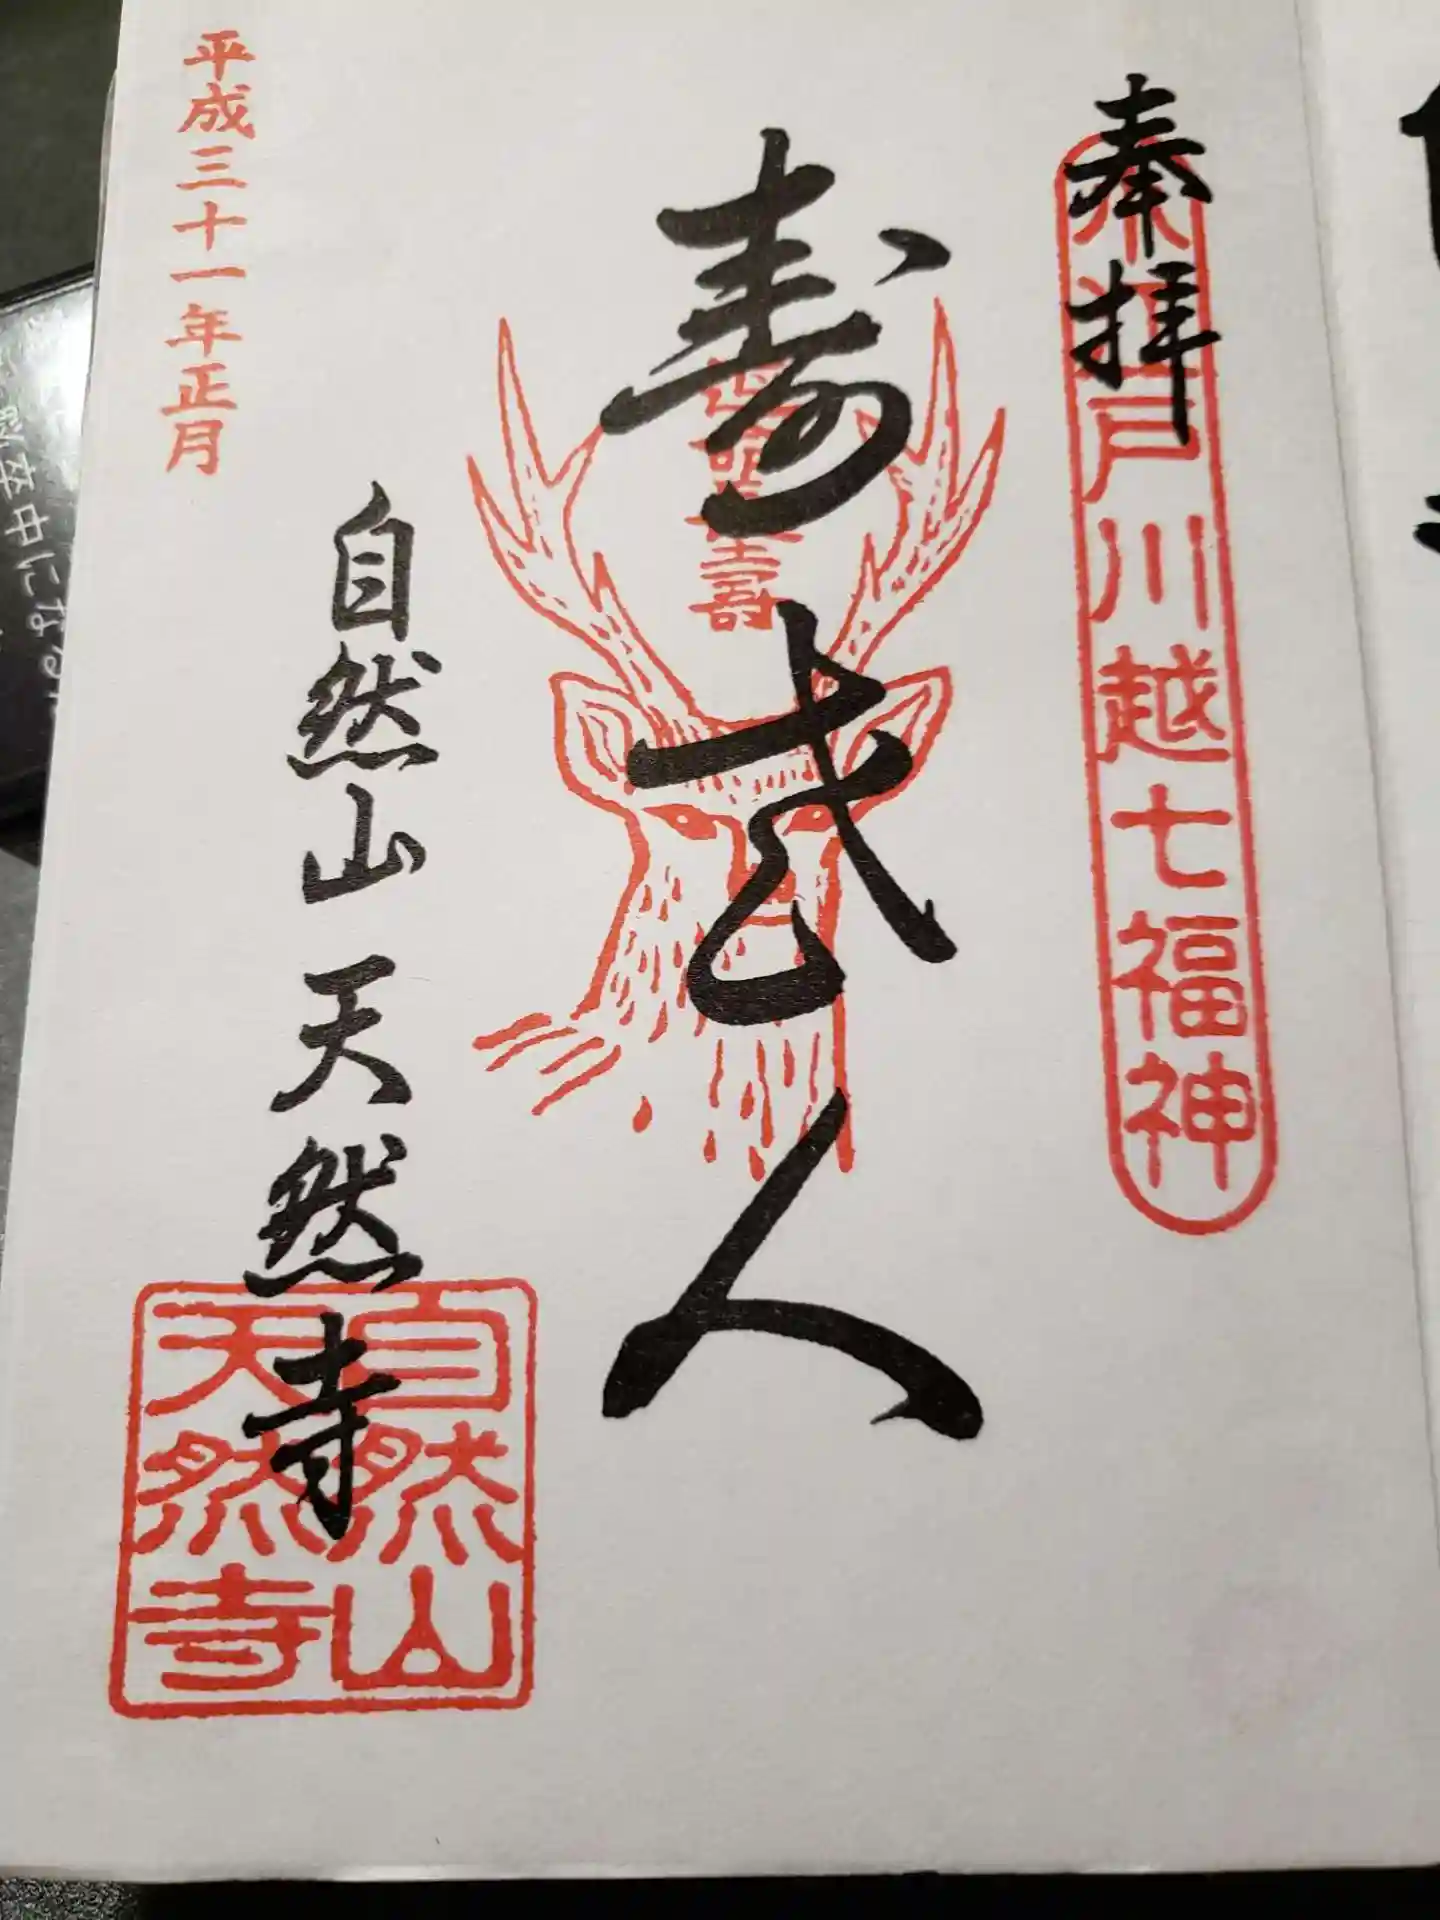 奉拝
小江戸川越七福神
寿老人
自然山 天然寺
自然山
天然寺
平成三十一年正月
卒中にな